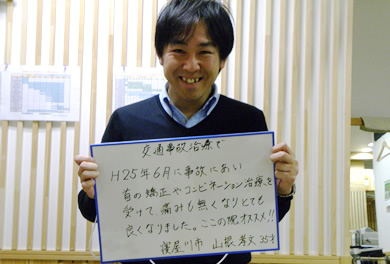 交通事故治療で
H25年6月に事故にあい
首の矯正やコンビネーション治療を
受けて、痛みも無くなりとても
良くなりました。ここの院オススメ!!
寝屋川市 山根孝文 35才